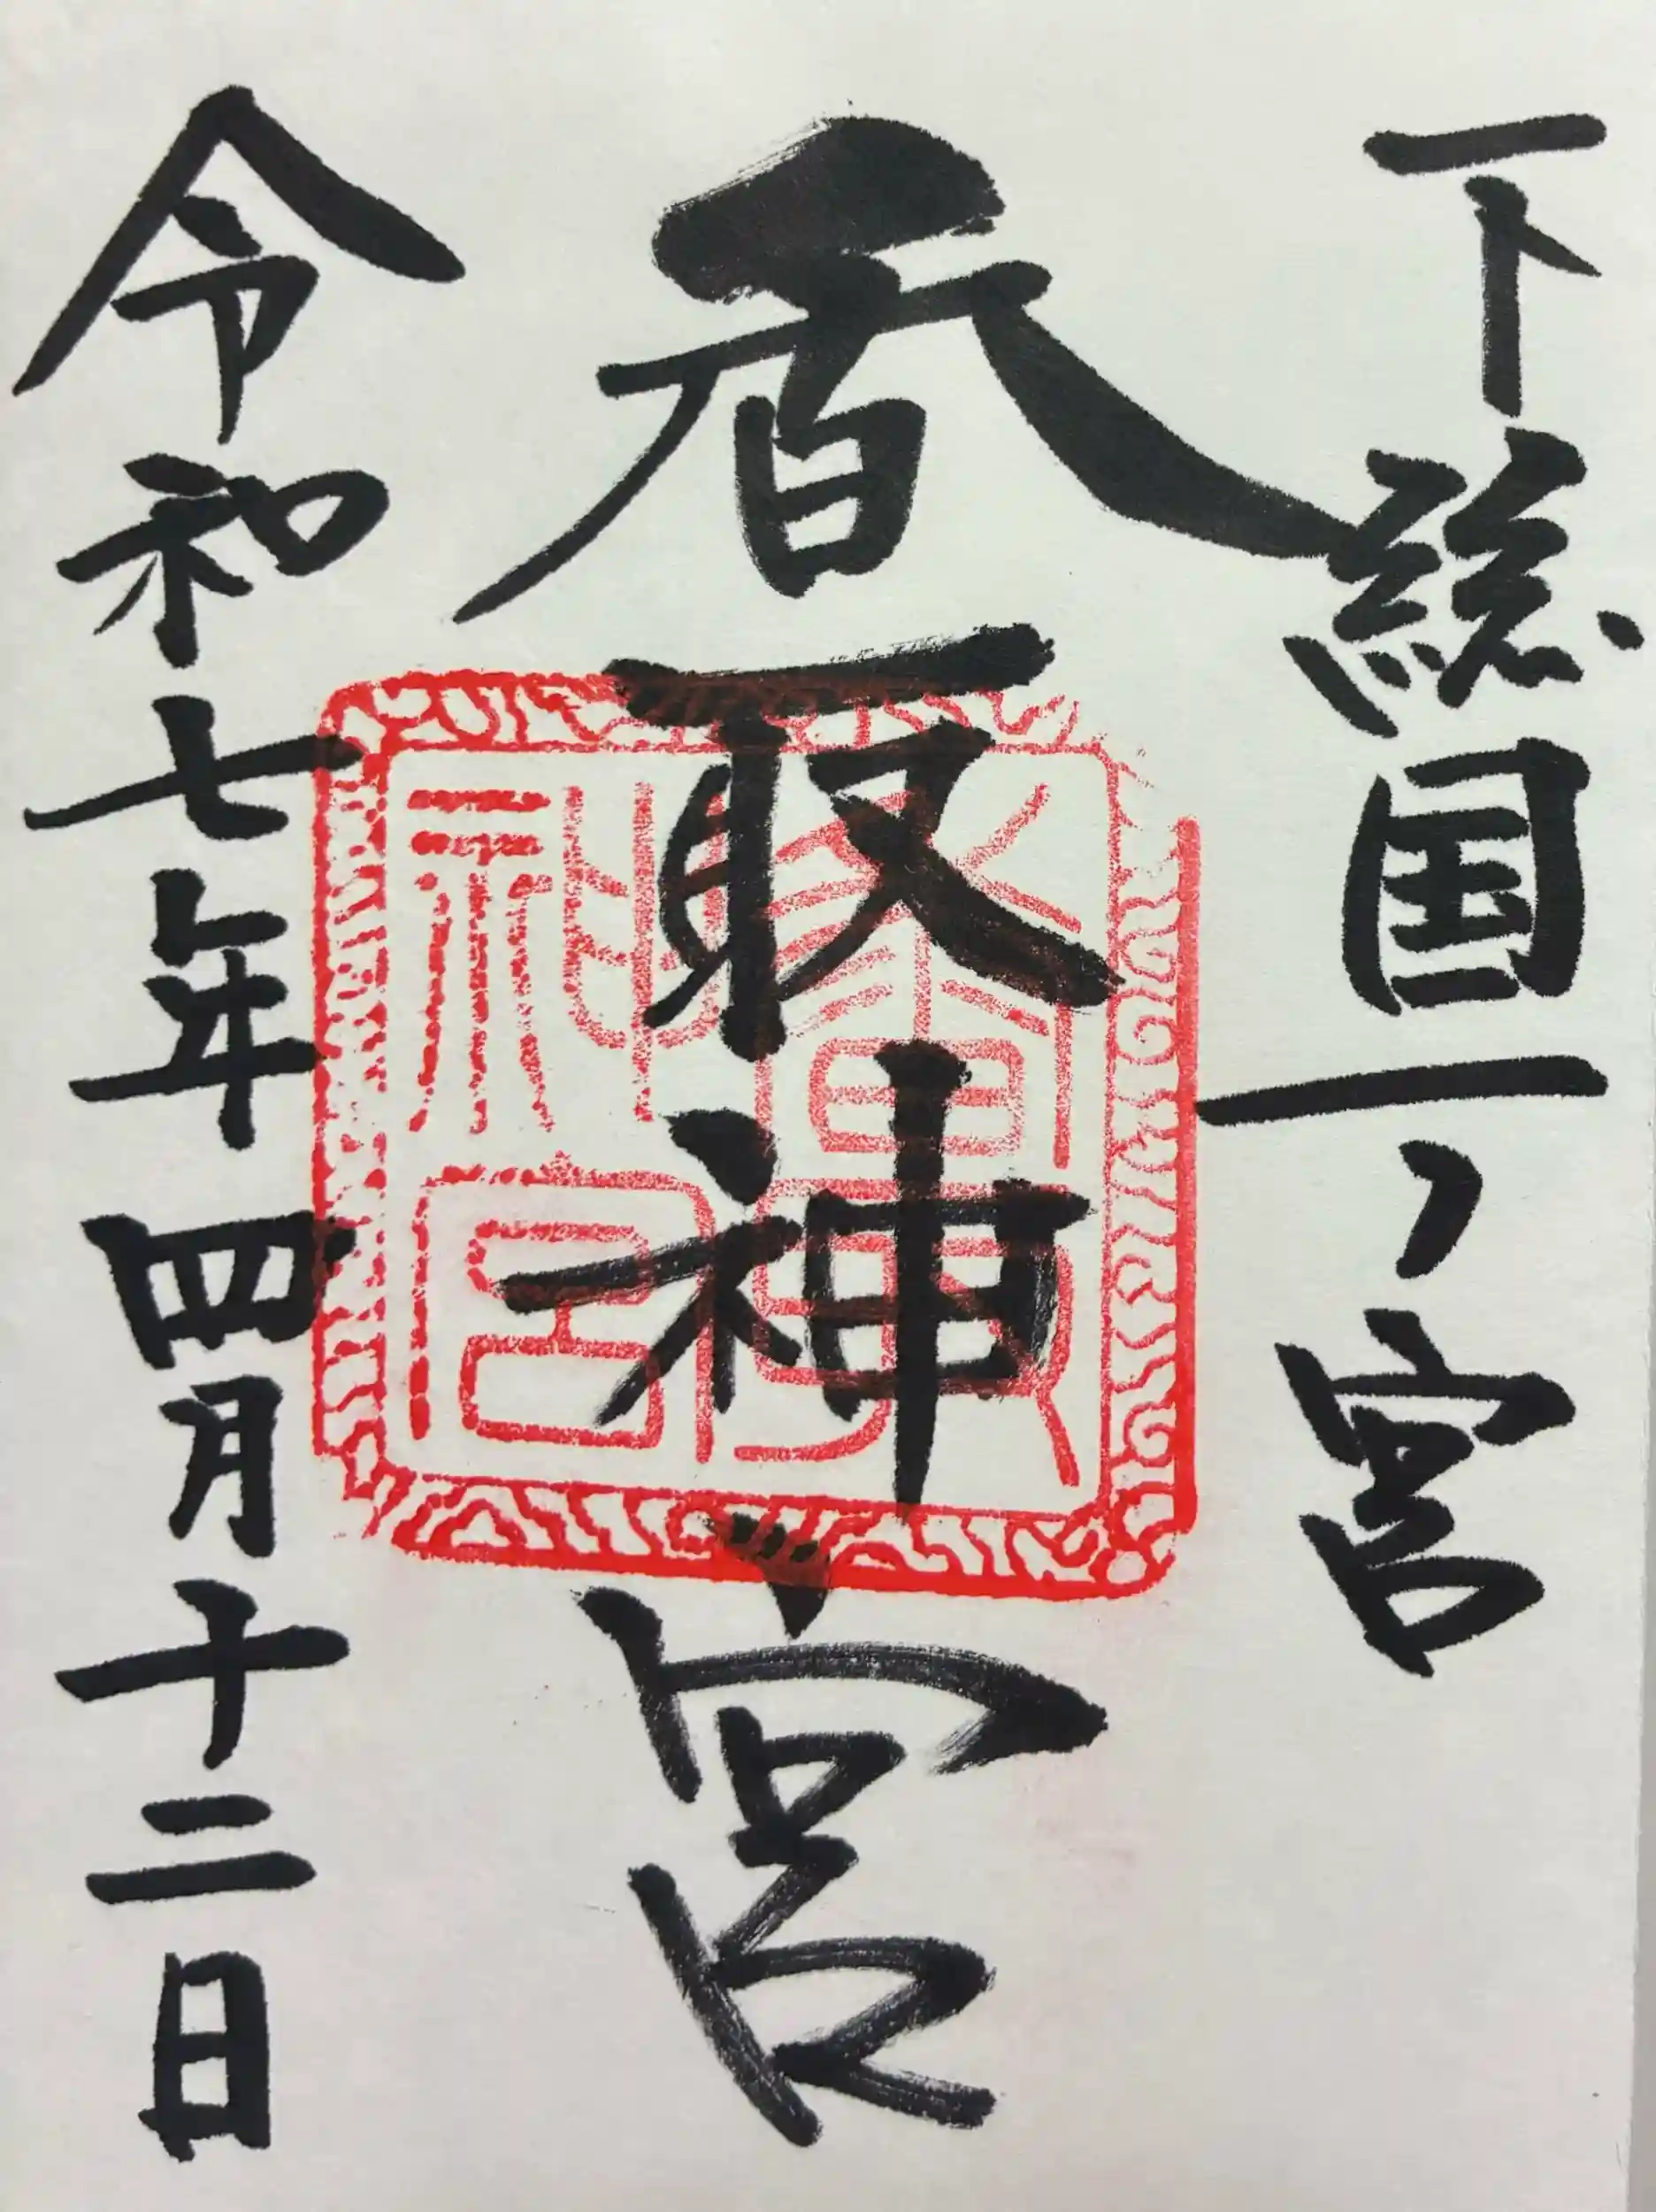 下総国一ノ宮
香取神宮
香取神宮
令和七年四月十二日